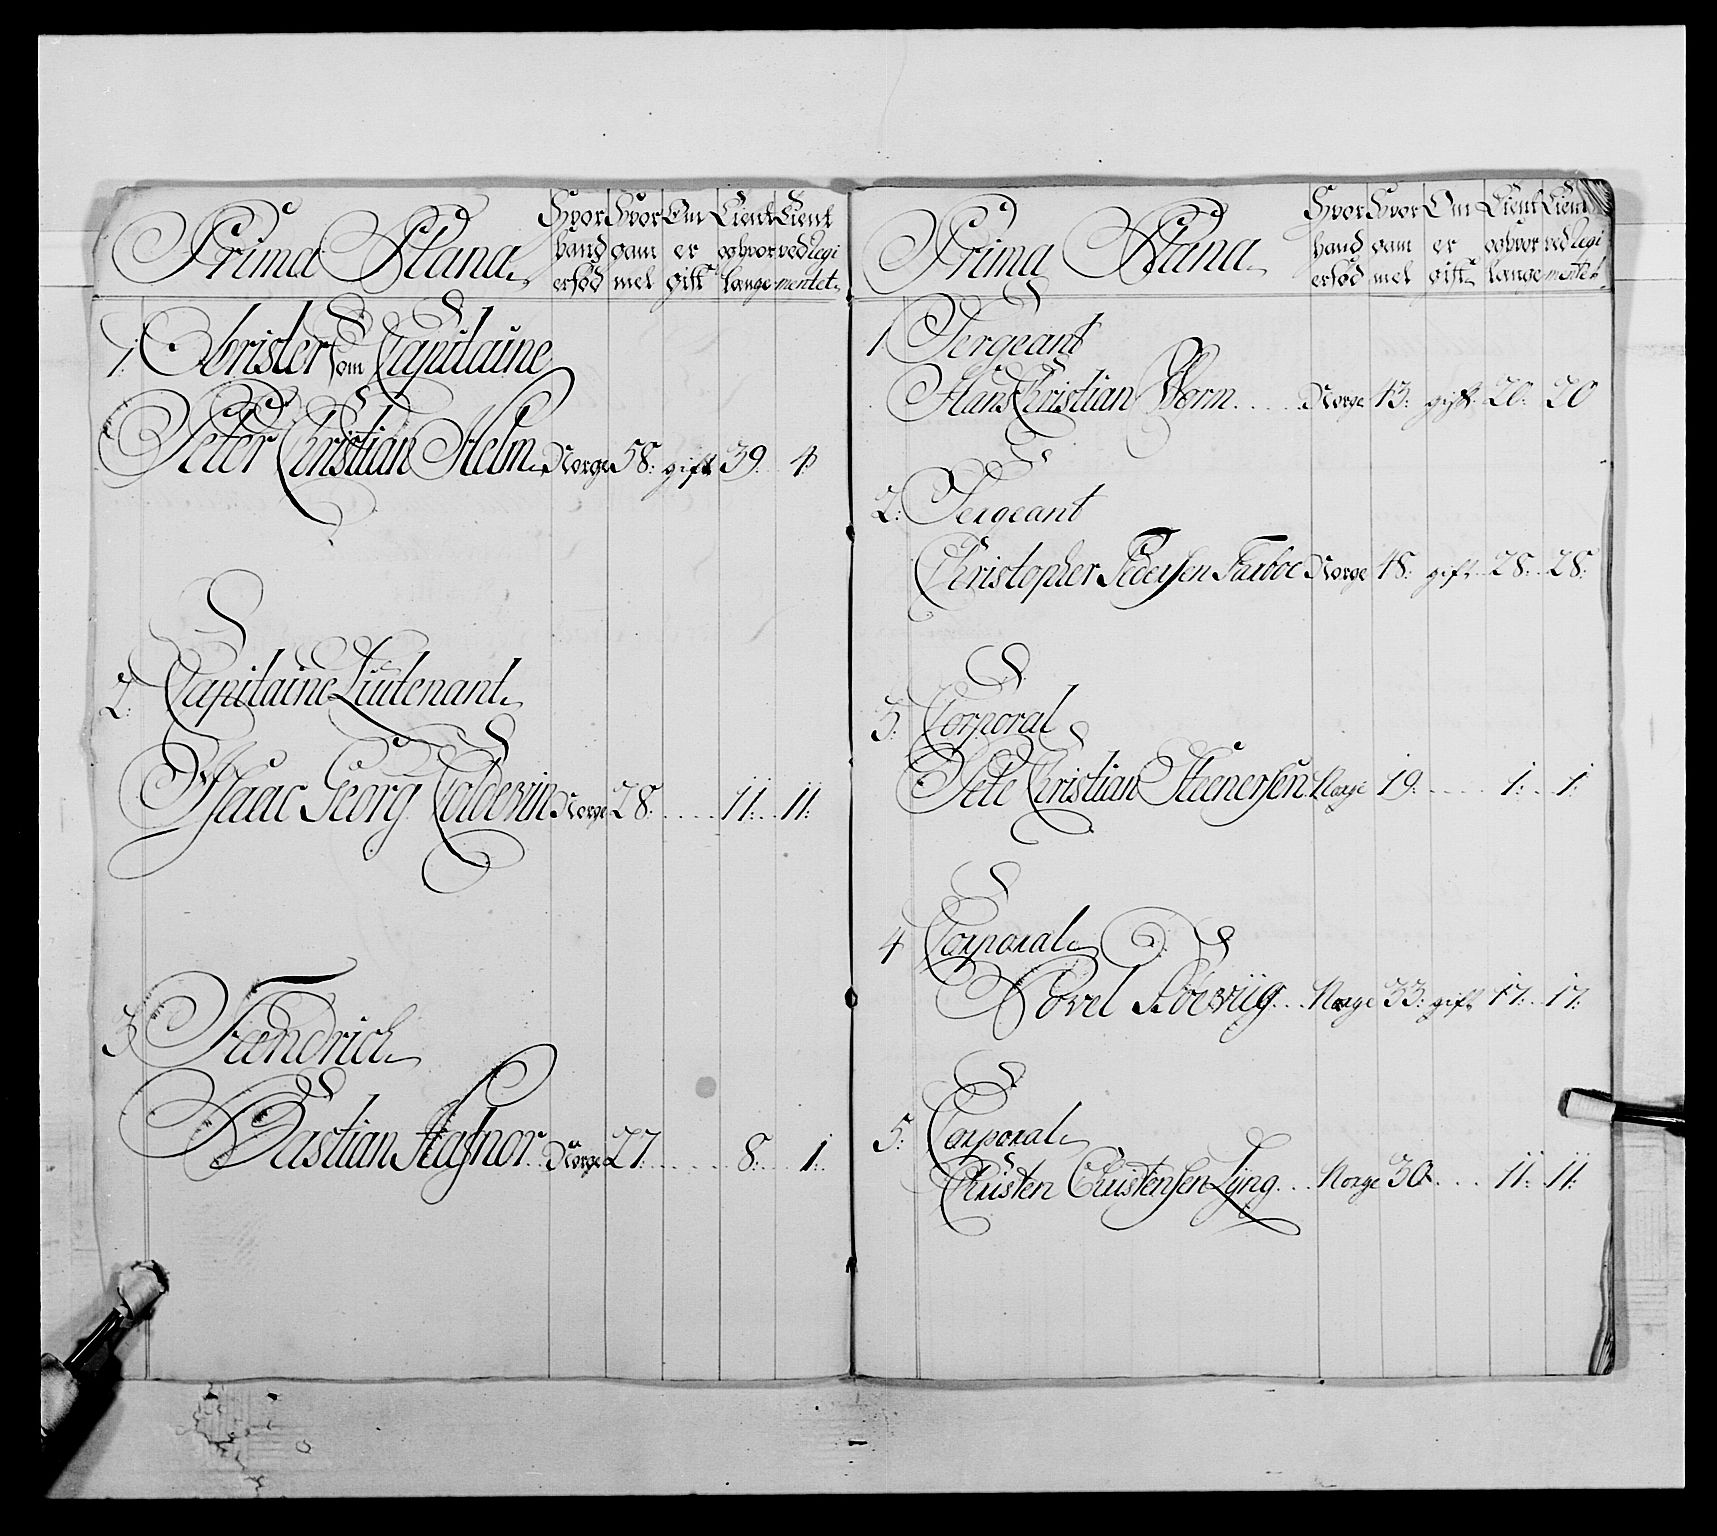 Prima Plana
Hvor hand er fød
Hvor gammel
Om er gift
Tient og hvor længe
Tient ved Regimentet.
1: Obrister som Capitaine
Peter Christian Helm. Norge 58: gift 39. 4
2: Capitaine Liutenant.
Isaac Georg Coldevin Norge 28. 11: 11:
3 Fændrich
Bastian Stabnor. Norge 27. 8: 1:
Prima Plana
Hvor hand er fød
Hvor gammel
Om er gift
Tient og hvor længe
Tient ved Regimentet.
1 Sergeant
Hans Christian Worm. Norge 43: gift. 20: 20
2: Sergeant
Christopher Pedersen Farboe Norge 48: gift. 28: 28:
3: Corporal
Pete Christian Steenersen Norge 19: 1: 1:
4 Corporal
Povel Norge 33: gift 17: 17:
5: Corporal
Christen Christensen Lÿng. Norge 30. 11: 11: